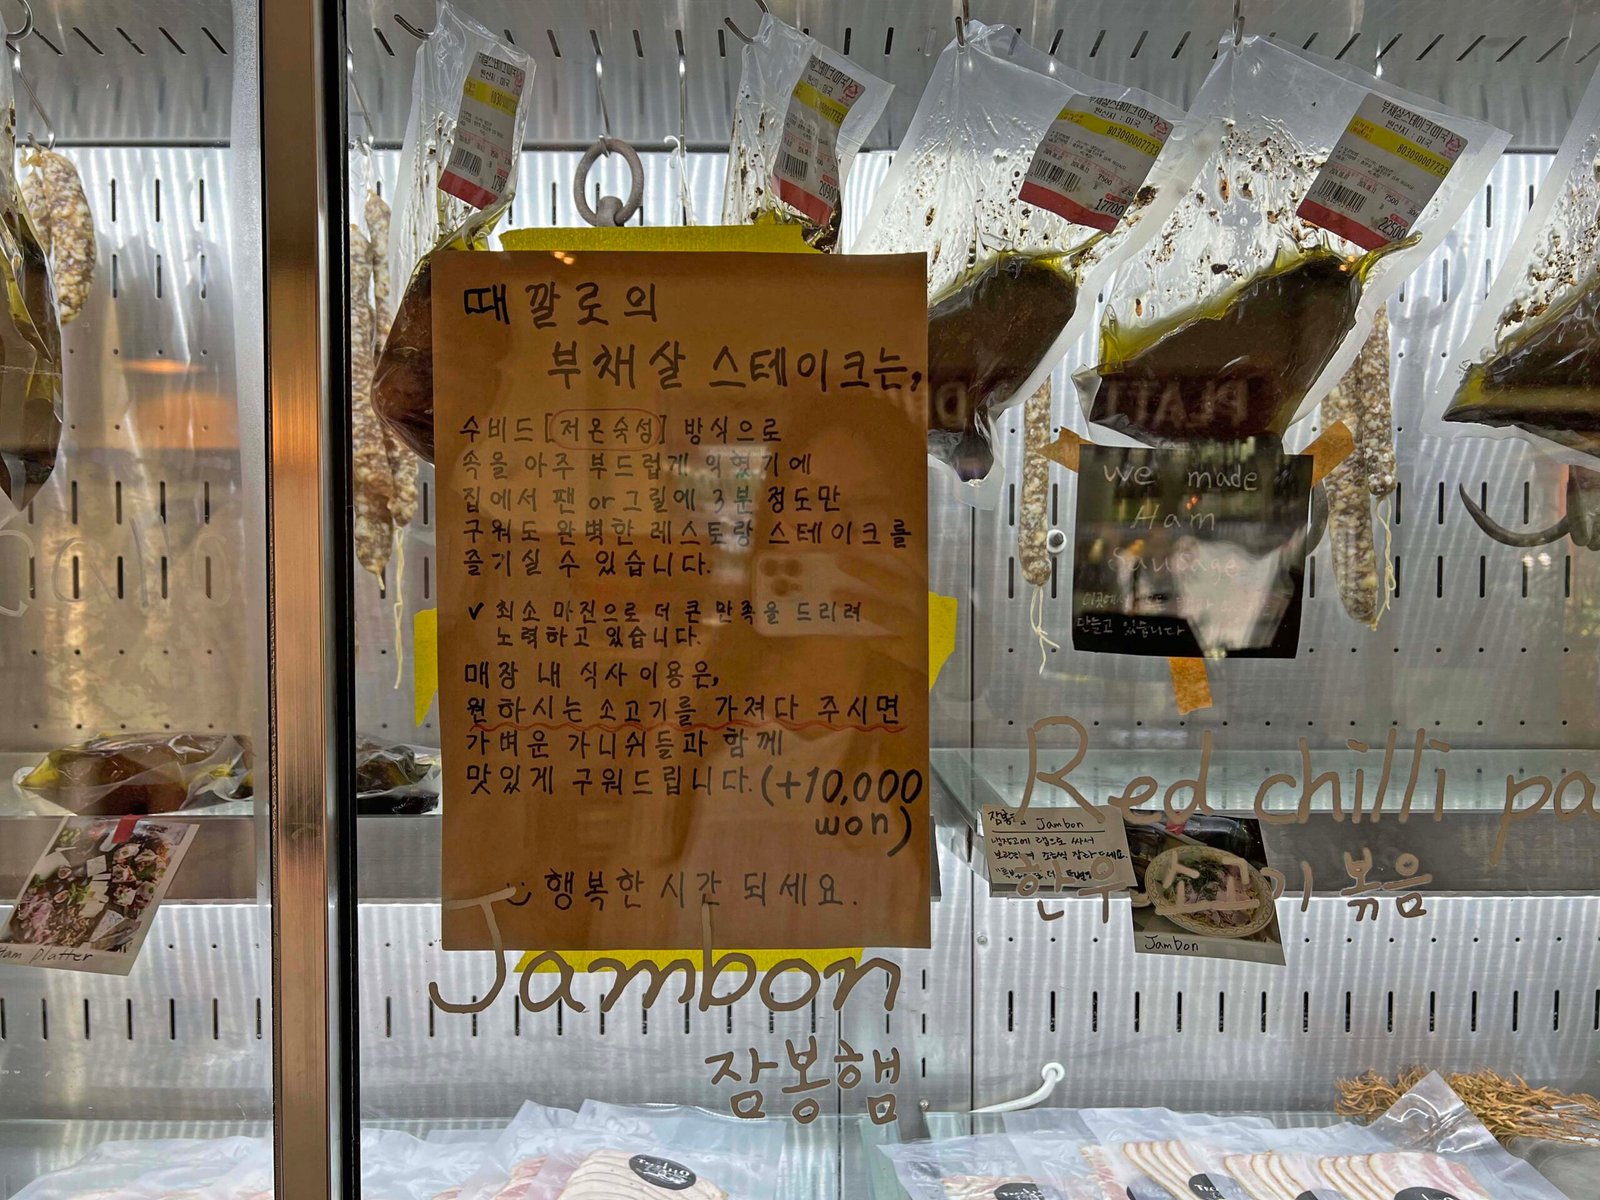 때깔로의
부채살 스테이크는,
수비드 [저온숙성] 방식으로
속을 아주 부드럽게 익혔기에
집에서 팬 or 그릴에 3분 정도만
구워도 완벽한 레스토랑 스테이크를
즐기실 수 있습니다.
✓ 최소 마진으로 더 큰 만족을 드리려
노력하고 있습니다.
매장 내 식사 이용은,
원하시는 소고기를 가져다 주시면
가벼운 가니쉬들과 함께
맛있게 구워드립니다. (+10,000
won)
행복한 시간 되세요.
Jambon
잠봉햄
부채살스테이크(미국)
원산지 : 미국
803090007733
17700
부채살스테이크(미국)
원산지 : 미국
803090007733
22500
원산지 : 미국
원산지 : 미국
we made
Ham
Sausage
만들고 있습니다
Red chilli pa
한우 소고기볶음
잠봉 Jambon
냉장고에 랩으로 싸서
Jambon
Ham platter